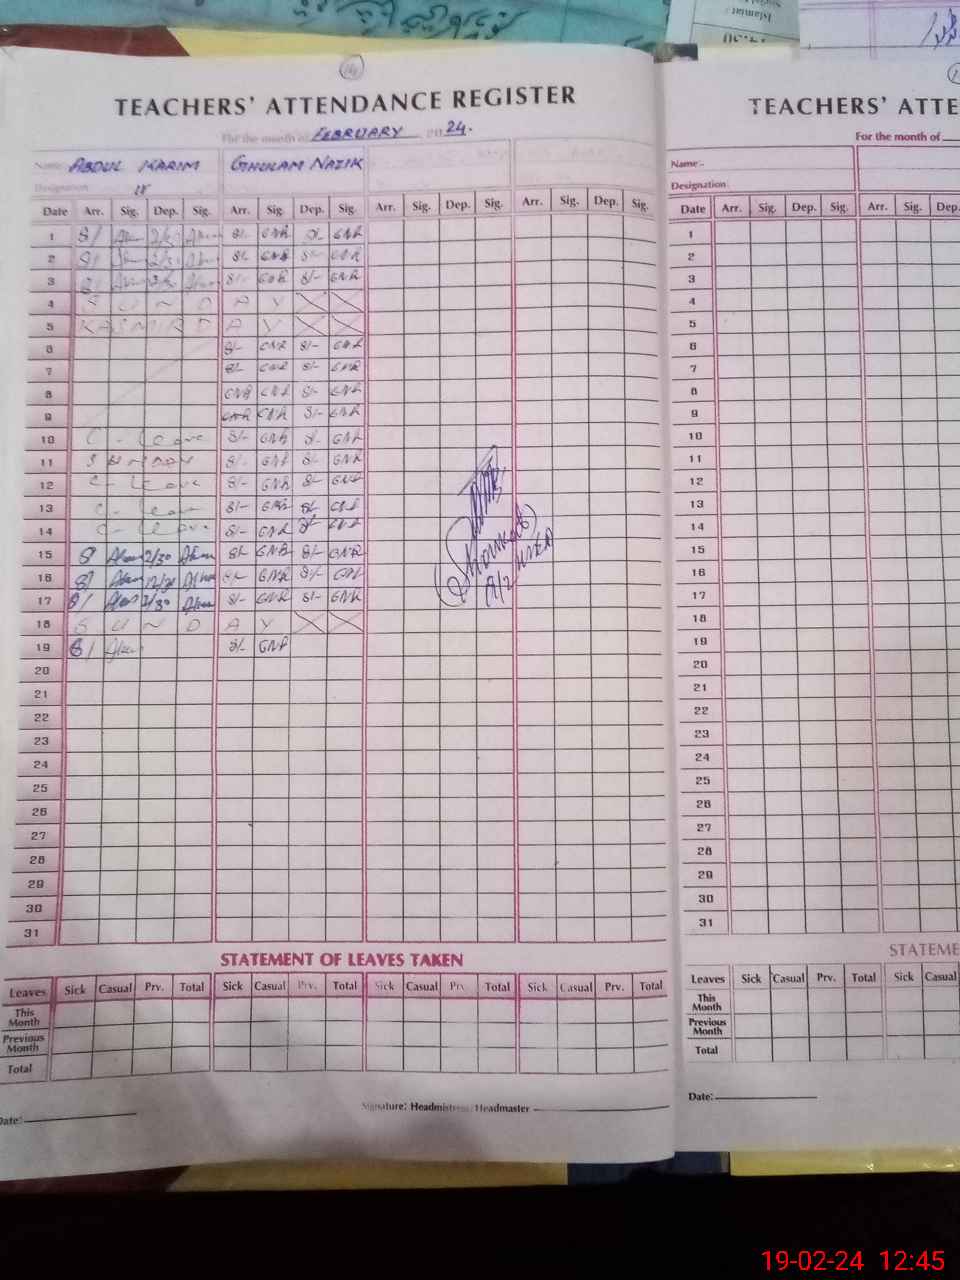 Islamiat
14
TEACHERS' ATTENDANCE REGISTER
For the month of FEBRUARY 2024.
Name: ABDUL KARIM GHULAM NAZIK
Designation
Date Arr. Sig. Dep. Sig. Arr. Sig. Dep. Sig. Arr. Sig. Dep. Sig. Arr. Sig. Dep. Sig.
1 8/ 8/- GNR 8/- GNR
2 8/ 8/- GNR 8/- GNR
3 8/ 8/- GNR 8/- GNR
4 S U N D A Y
5 KASMIR D A Y
6 8/- GNR 8/- GNR
7 8/- GNR 8/- GNR
8 GNR GNR 8/- GNR
9 GNR GNR 8/- GNR
10 C - leave 8/- GNR 8/- GNR
11 SUNDAY 8/- GNR 8/- GNR
12 C - leave 8/- GNR 8/- GNR
13 C - leave 8/- GNR 8/- GNR
14 C - leave 8/- GNR 8/- GNR
15 8/ 2/30 8/- GNR 8/- GNR
16 8/ 12/30 8/- GNR 8/- GNR
17 8/ 2/30 8/- GNR 8/- GNR
18 S U N D A Y
19 8/ 8/- GNR
20
21
22
23
24
25
26
27
28
29
30
31
STATEMENT OF LEAVES TAKEN
Leaves Sick Casual Prv. Total Sick Casual Prv. Total Sick Casual Prv. Total Sick Casual Prv. Total
This Month
Previous Month
Total
Date:
Signature: Headmistress/Headmaster
TEACHERS' ATTE
For the month of
Name:-
Designation
Date Arr. Sig. Dep. Sig. Arr. Sig. Dep.
1
2
3
4
5
6
7
8
9
10
11
12
13
14
15
16
17
18
19
20
21
22
23
24
25
26
27
28
29
30
31
STATEME
Leaves Sick Casual Prv. Total Sick Casual
This Month
Previous Month
Total
Date:
19-02-24 12:45